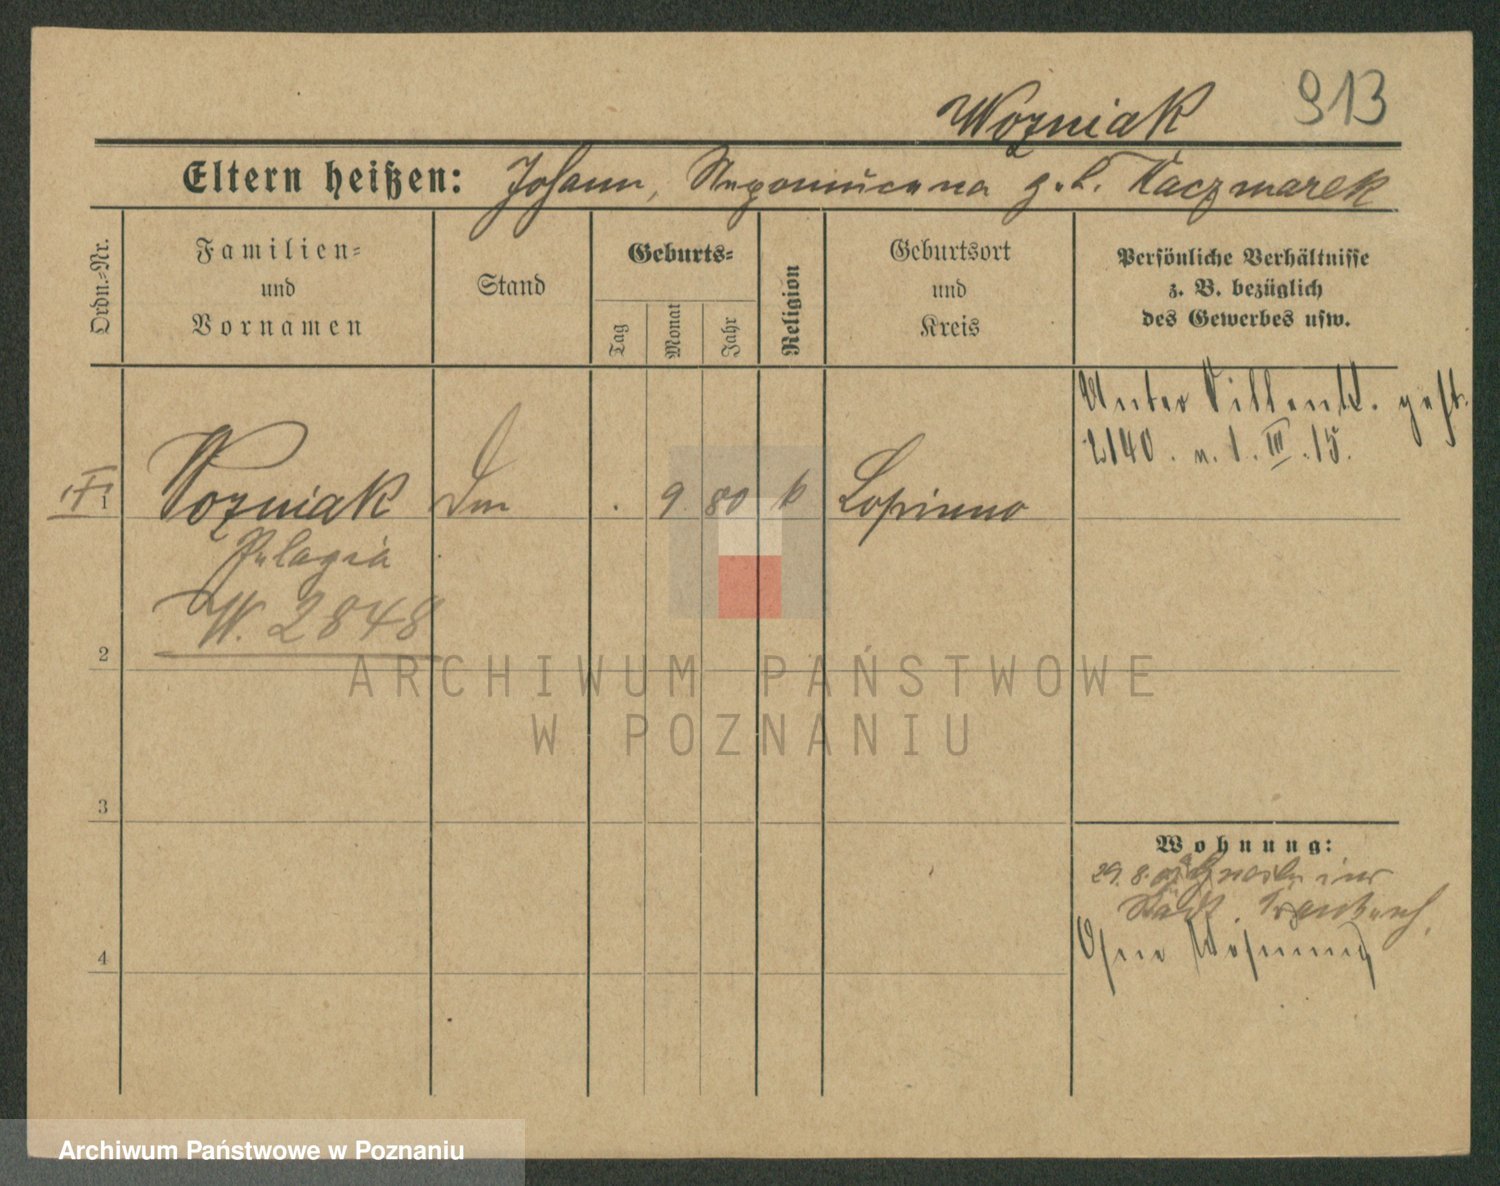 Wozniak 913
Eltern heißen: Johann, Nepomucena geb. Kaczmarek
Ordn.-Nr.
Familien-
und
Vornamen
Stand
Geburts-
Tag
Monat
Jahr
Religion
Geburtsort
und
Kreis
Persönliche Verhältnisse
z. B. bezüglich
des Gewerbes usw.
Unter Sittenk. gest.
2140. v. 1. III. 15.
1 Wozniak . 9 80 k Lopienno
Pelagia
W. 2848
2
ARCHIWUM PAŃSTWOWE
W POZNANIU
3
Wohnung:
29. 8. im
Städt.
Ohne Wohnung
4
Archiwum Państwowe w Poznaniu